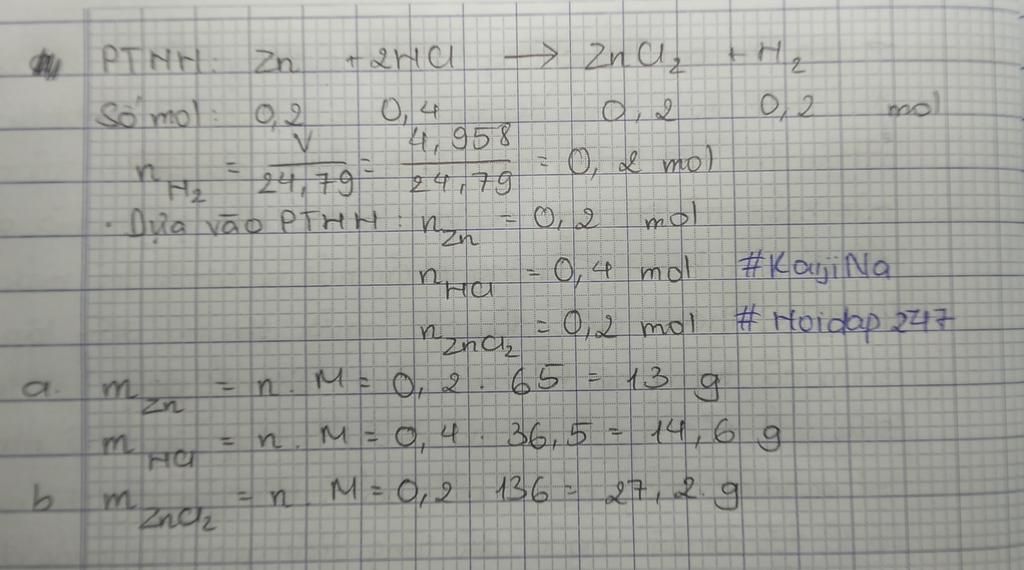 PTHH: Zn + 2HCl → ZnCl₂ + H₂
Số mol: 0,2 0,4 0,2 0,2 mol
n_H₂ = V/24,79 = 4,958/24,79 = 0,2 mol
. Dựa vào PTHH: n_Zn = 0,2 mol
n_HCl = 0,4 mol #KanjiNa
n_ZnCl₂ = 0,2 mol #Hoidap247
a. m_Zn = n. M = 0,2 . 65 = 13 g
m_HCl = n. M = 0,4 . 36,5 = 14,6 g
b m_ZnCl₂ = n M = 0,2 136 = 27,2 g